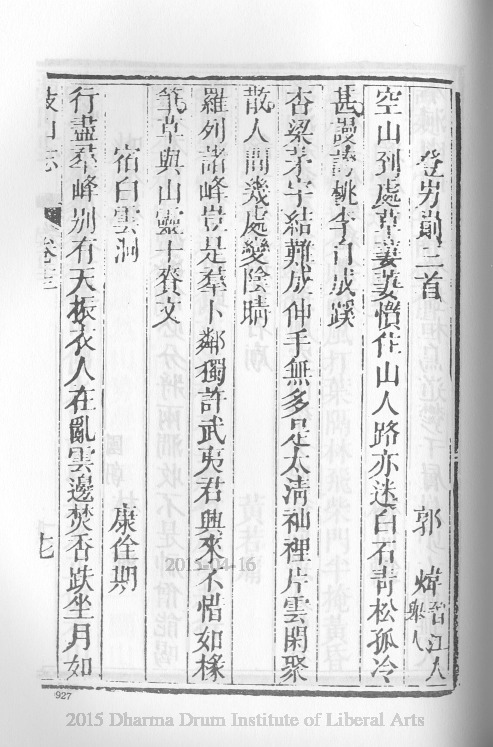 登屴崱三首　郭　煒晉江人舉人
空山到處草萋萋慣住山人路亦迷白石青松孤冷
甚謾誇桃李自成蹊
杏梁茅宇結難成伸手無多是太清袖裡片雲閑聚
散人間幾處變陰晴
羅列諸峰豈是羣卜鄰獨許武夷君興來不惜如椽
筆草與山靈十賚文
宿白雲洞　康佺期
行盡羣峰别有天振衣人在亂雲邊焚香趺坐月如
鼓山志　卷十三　十七
927
2015-04-16
2015 Dharma Drum Institute of Liberal Arts